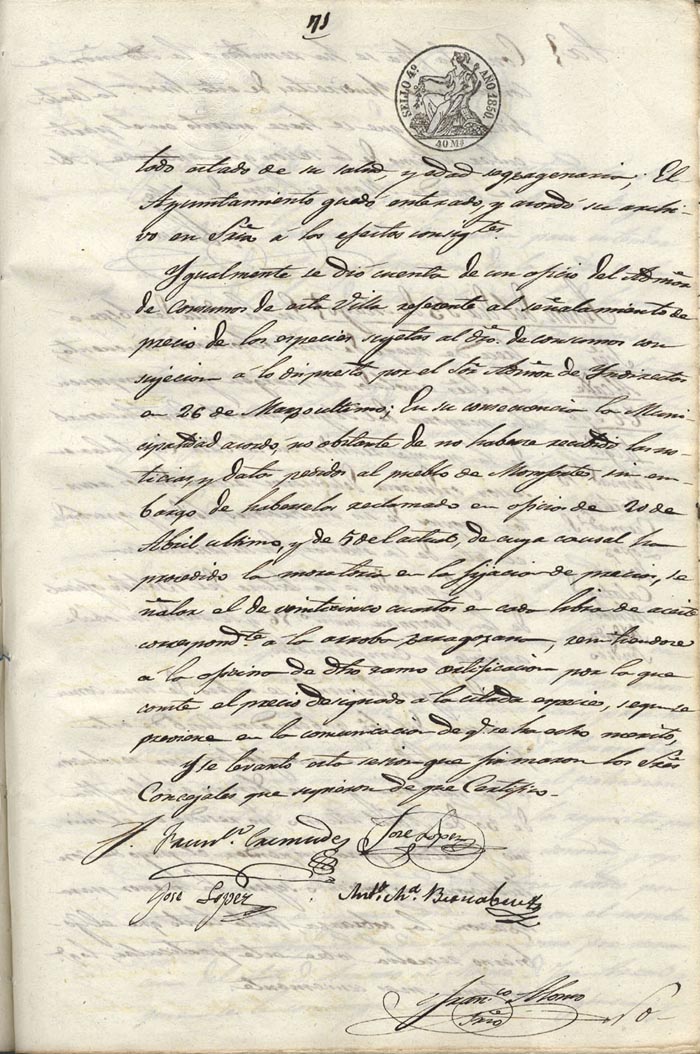 71
SELLO 4º AÑO 1850.
40 Ms
todo estado de su salud, y edad sexagenaria; El
Ayuntamiento quedó enterado, y acordó su archi-
vo en Sria á los efectos consigtes.
Ygualmente se dió cuenta de un oficio del Admor
de consumos de esta Villa referente al señalamiento de
precio de las especies sujetas al dro. de consumos con
sujecion a lo dispuesto por el Sor Admor de Yndirectos
en 26 de Marzo ultimo; En su consecuencia la Muni-
cipalidad acordó, no obstante de no haberse recibido las no-
ticias, y datos pedidos al pueblo de Monforte, sin em-
bargo de haberselos reclamado en oficios de 20 de
Abril ultimo, y de 5 del actual, de cuya causal ha
procedido la moratoria en la fijacion de precios, se-
ñalar el de veinticinco cuartos en cada libra de aceite
correspondte. a la arroba zaragozana, remitiendose
á la oficina de dho ramo certificacion por la que
conste el precio designado a la citada especie, segun se
previene en la comunicacion de q.e se ha echo merito,
Y se levantó esta sesion que firmaron los Sres
Concejales que supieron de que Certifico.
José Lopez
José Lopez
Anto. Ma. Bernabeu
Franco Alonso
Srio